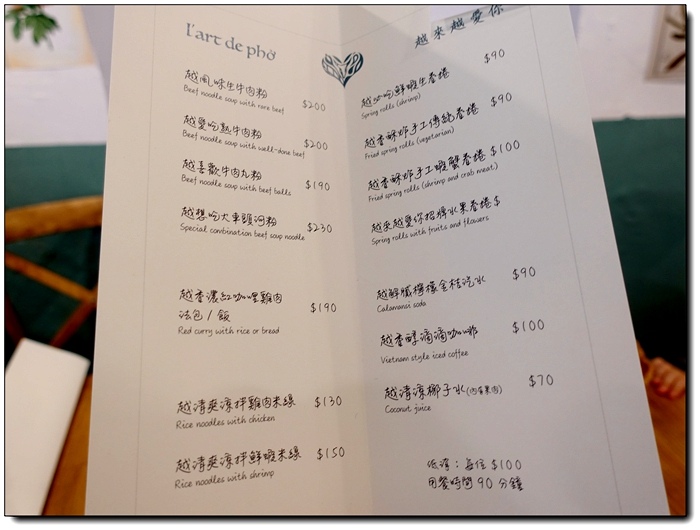 l'art de phở
越風味生牛肉粉
Beef noodle soup with rare beef $200
越愛吃熟牛肉粉 $200
Beef noodle soup with well-done beef
越喜歡牛肉丸粉
Beef noodle soup with beef balls $190
越想吃大車頭河粉 $230
Special combination beef soup noodle
越香濃紅咖哩雞肉
法包 / 飯 $190
Red curry with rice or bread
越清爽涼拌雞肉米線 $130
Rice noodles with chicken
越清爽涼拌鮮蝦米線 $150
Rice noodles with shrimp
越來越愛你
越好吃鮮蝦生春捲 $90
Spring rolls (shrimp)
越香酥炸手工傳統春捲 $90
Fried spring rolls (vegetarian)
越香酥炸手工蝦蟹春捲 $100
Fried spring rolls (shrimp and crab meat)
越來越愛你招牌水果春捲 $
Spring rolls with fruits and flowers
越解膩檸檬金桔汽水 $90
Calamansi soda
越香醇滴滴咖啡 $100
Vietnam style iced coffee
越清涼椰子水(內含果肉) $70
Coconut juice
低消：每位 $100
用餐時間 90 分鐘